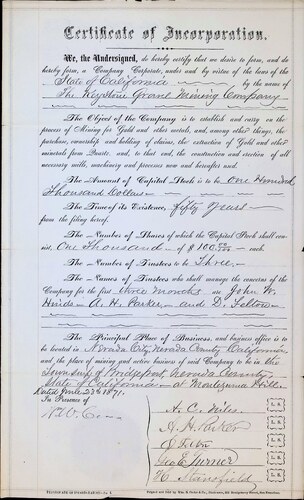 Certificate of Incorporation.
We, the Undersigned, do hereby certify that we desire to form, and do
hereby form, a Company Corporate, under and by virtue of the laws of the
State of California by the name of
The Keystone Grant Mining Company
The Object of the Company is to establish and carry on the
process of Mining for Gold and other metals, and, among other things, the
purchase, ownership and holding of claims, the extraction of Gold and other
minerals from Quartz, and, to that end, the construction and erection of all
necessary mills, machinery and processes now and hereafter used.
The Amount of Capital Stock is to be One Hundred
Thousand Dollars
The Time of its Existence, fifty Years
from the filing hereof.
The Number of Shares of which the Capital Stock shall
consist, One Thousand of $100 each.
The Number of Trustees to be Three.
The Names of Trustees who shall manage the concerns of the
Company for the first three months are John W.
Hinds A. H. Parker and D. Felton
The Principal Place of Business, and business office is to
be located in Nevada City, Nevada County California
and the place of mining and active business of said Company to be in the
Township of Bridgeport, Nevada County,
State of California at
Hill.
Dated June 23d 1871.
In Presence of
A. H. Parker
Geo. E. Turner
H. Stansfield